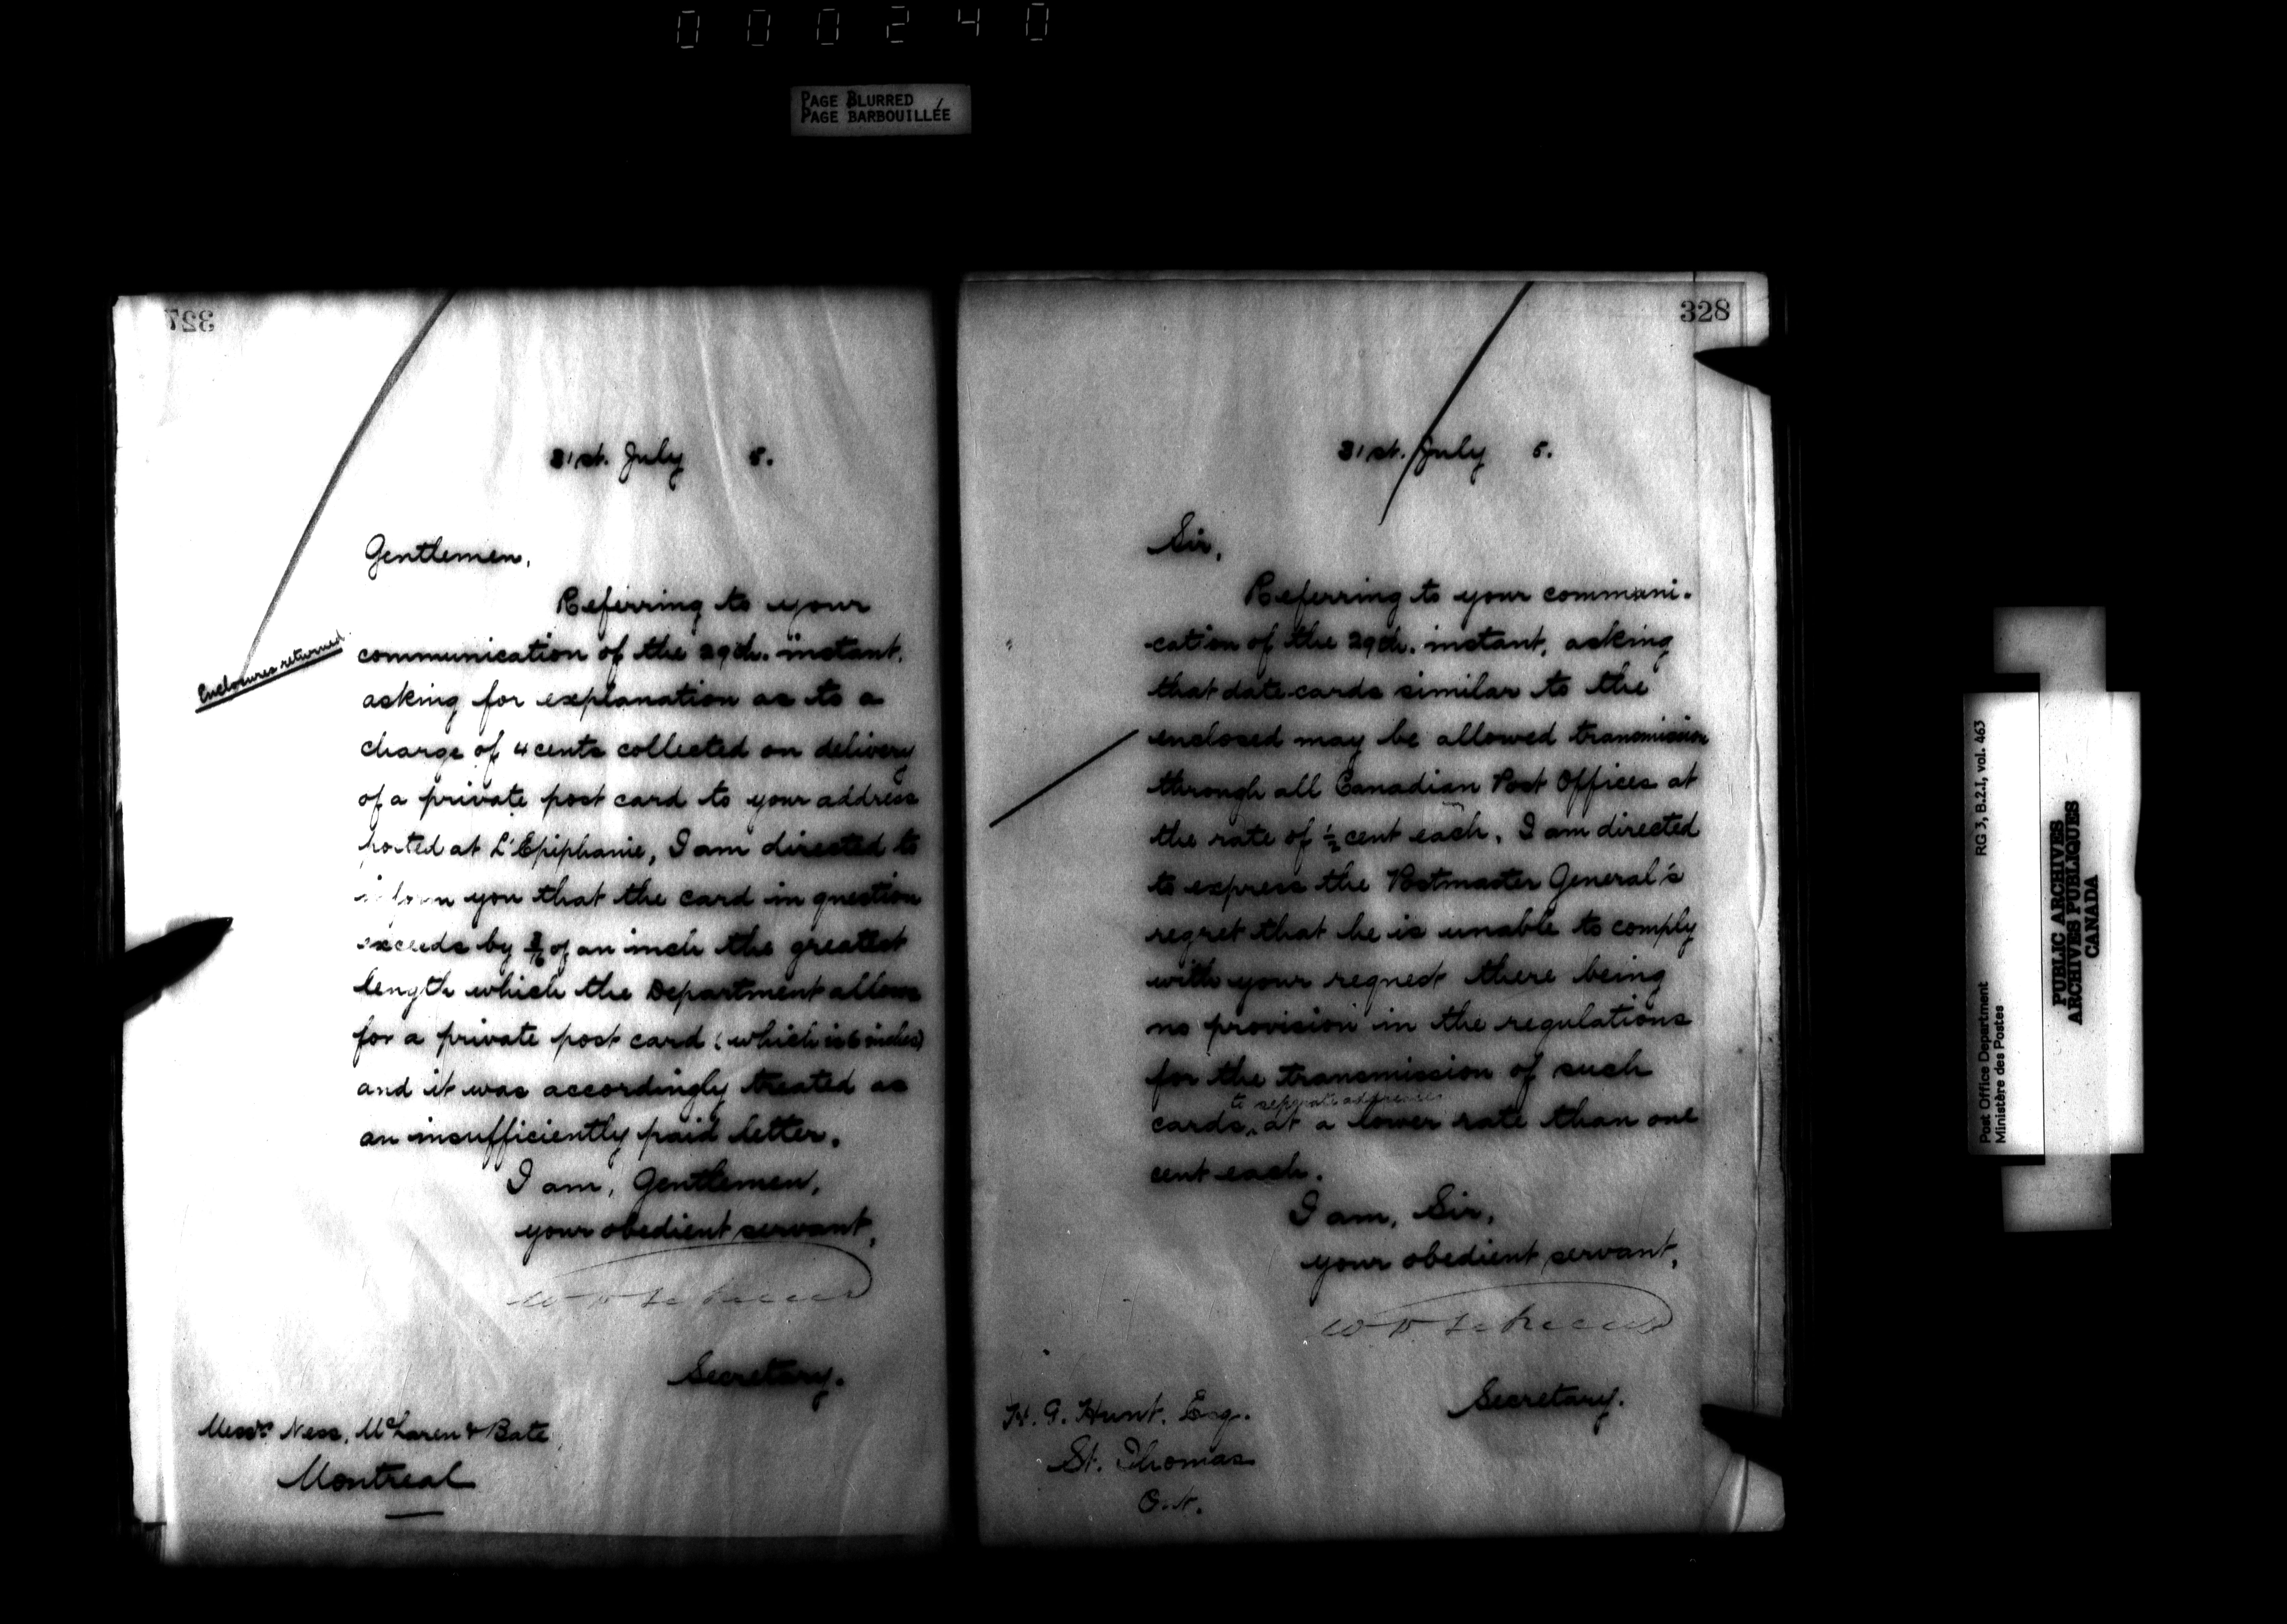 000240
PAGE BLURRED
PAGE BARBOUILLÉE
327
31st. July 5.
Gentlemen,
Referring to your
communication of the 29th. instant,
Enclosures returned
asking for explanation as to a
charge of 4 cents collected on delivery
of a private post card to your address
posted at L'Epiphanie, I am directed to
inform you that the card in question
exceeds by of an inch the greatest
length which the Department allows
for a private post card (which is 6 inches)
and it was accordingly treated as
an insufficiently paid letter.
I am, Gentlemen,
your obedient servant,
Secretary.
Messrs Ness, McLaren & Bate
Montreal
328
31st. July 5.
Sir,
Referring to your communi-
-cation of the 29th. instant, asking
that date cards similar to the
enclosed may be allowed transmission
through all Canadian Post Offices at
the rate of ½ cent each, I am directed
to express the Postmaster General's
regret that he is unable to comply
with your request there being
no provision in the regulations
for the transmission of such
to separate addresses
cards, at a lower rate than one
cent each.
I am, Sir,
your obedient servant,
Secretary.
H. G. Hunt. Esq.
St. Thomas
Ont.
Post Office Department
Ministère des Postes
RG 3, B.2.I, vol. 463
PUBLIC ARCHIVES
ARCHIVES PUBLIQUES
CANADA